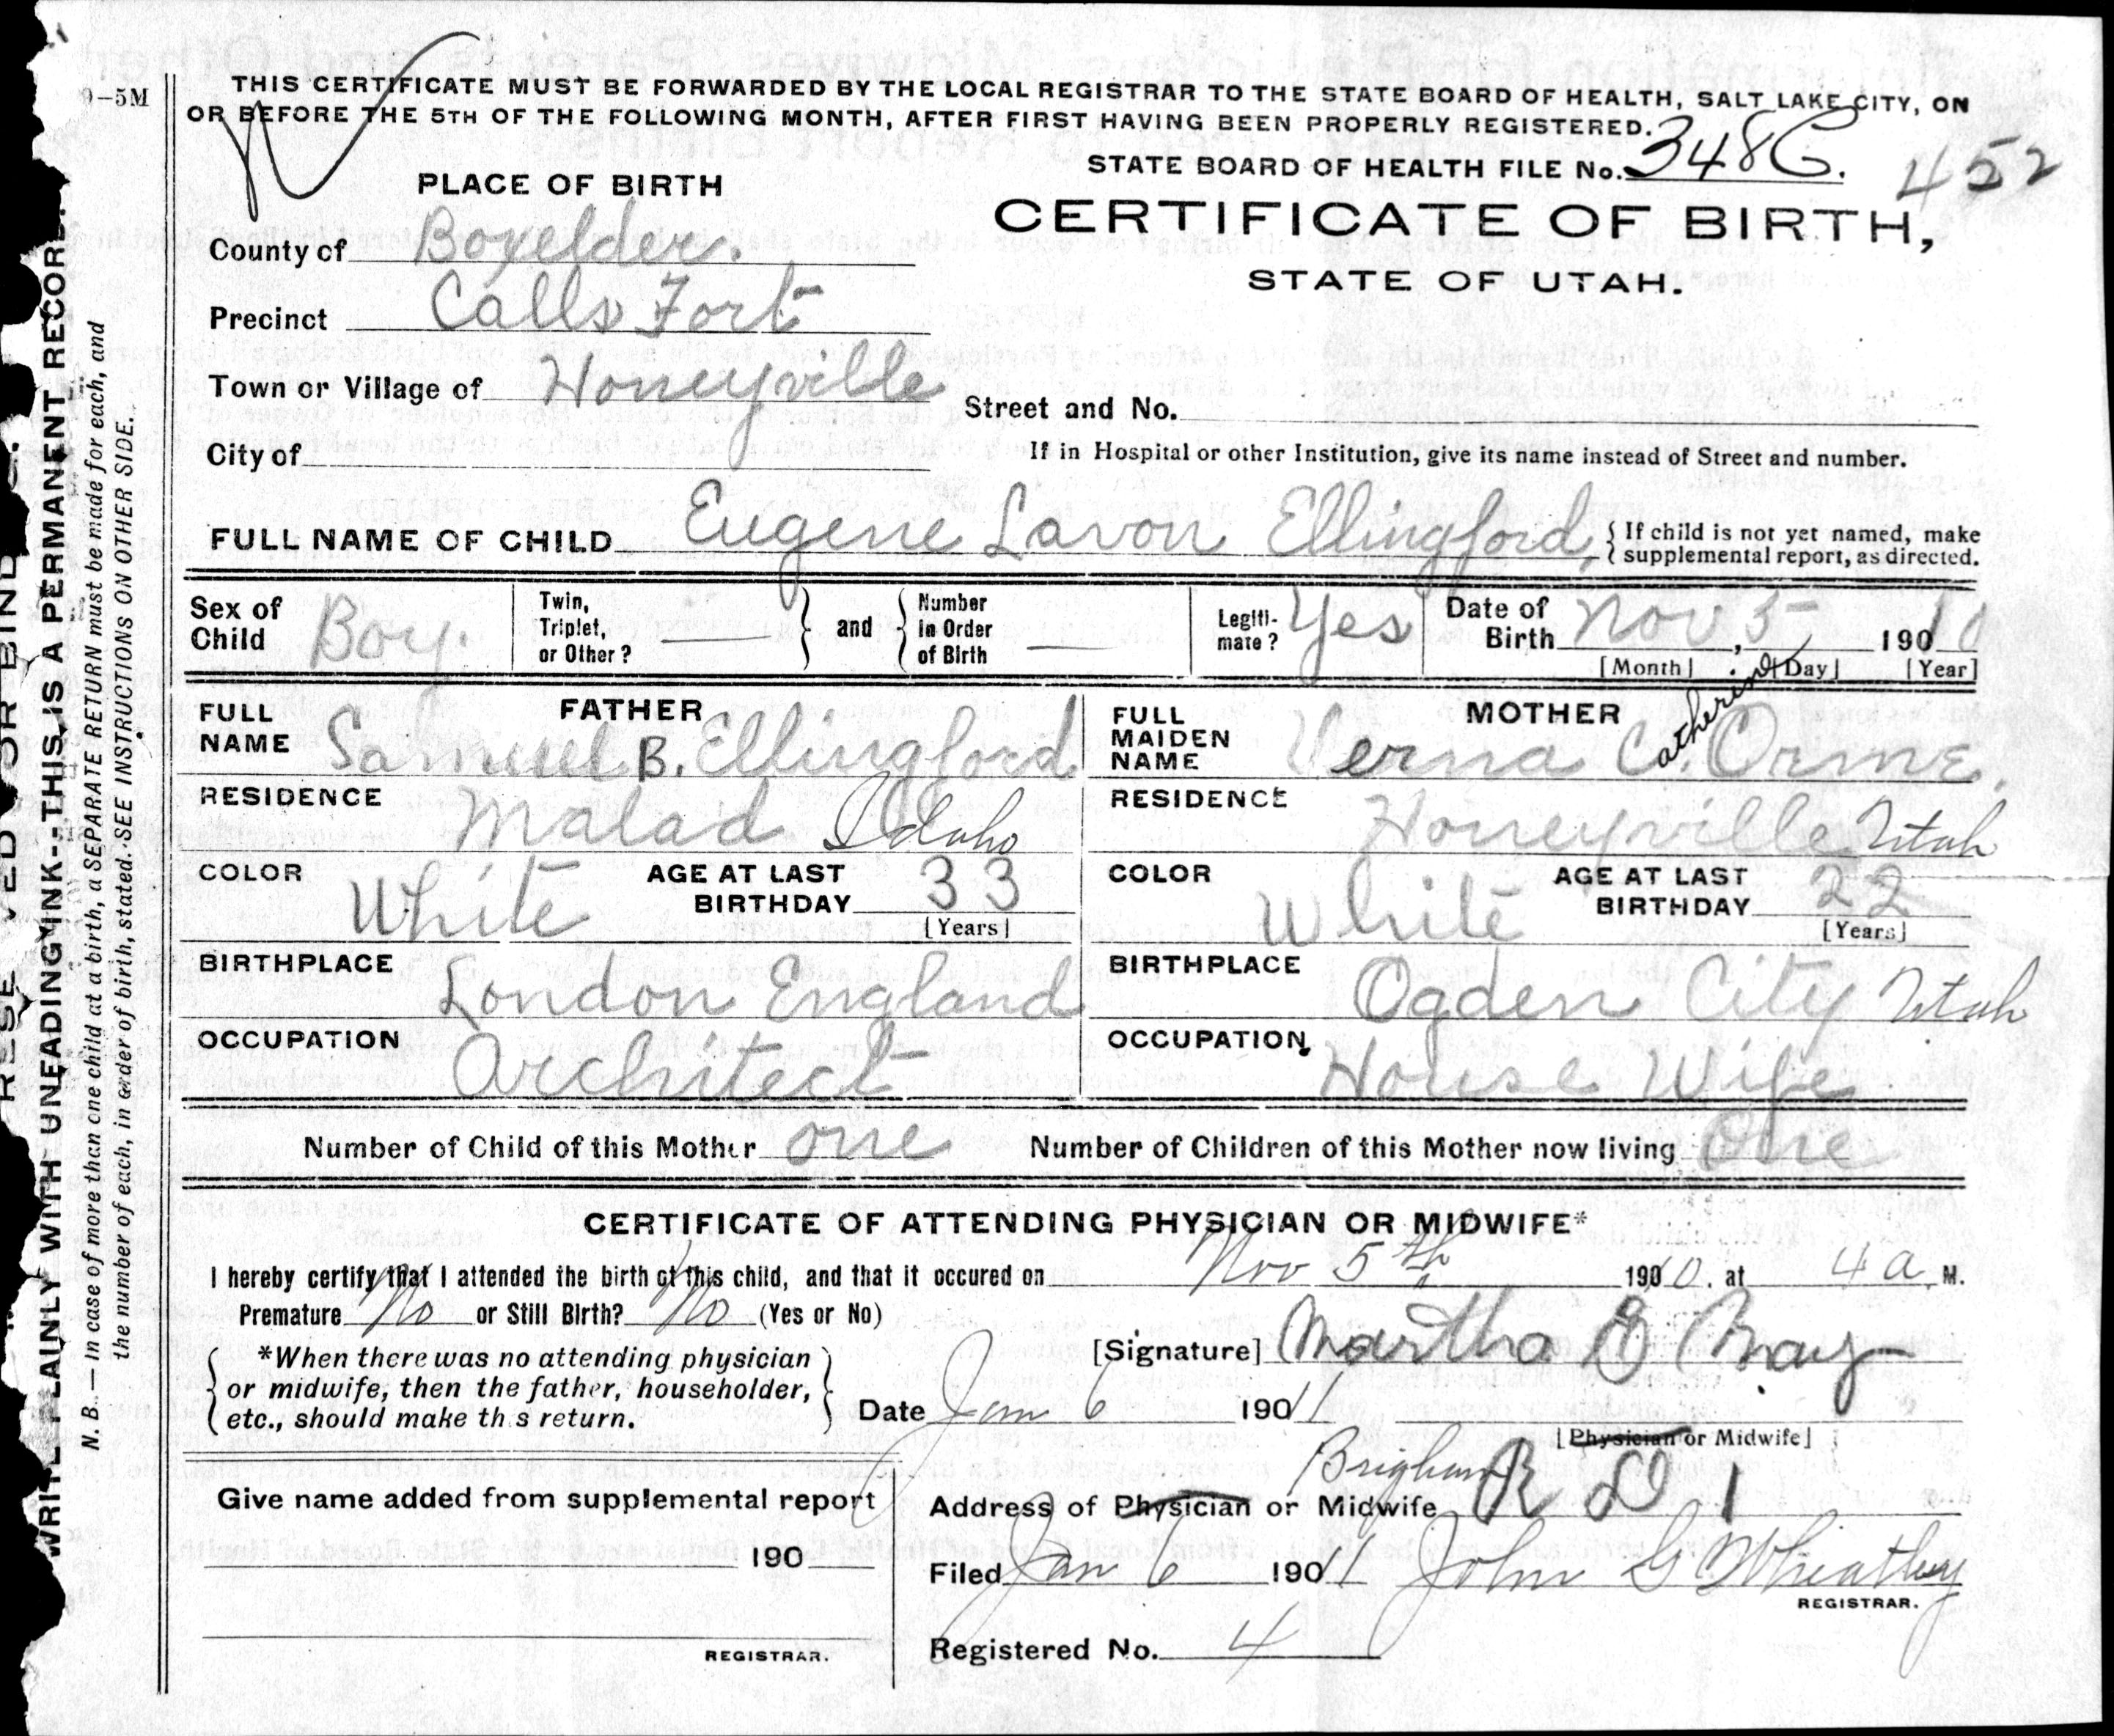 9-5M
THIS CERTIFICATE MUST BE FORWARDED BY THE LOCAL REGISTRAR TO THE STATE BOARD OF HEALTH, SALT LAKE CITY, ON
OR BEFORE THE 5TH OF THE FOLLOWING MONTH, AFTER FIRST HAVING BEEN PROPERLY REGISTERED.
STATE BOARD OF HEALTH FILE No. 348C. 452
PLACE OF BIRTH
CERTIFICATE OF BIRTH,
STATE OF UTAH.
County of Boxelder.
Precinct Calls Fort
Town or Village of Honeyville
Street and No.
City of
If in Hospital or other Institution, give its name instead of Street and number.
FULL NAME OF CHILD Eugene Lavon Ellingford
{ If child is not yet named, make
supplemental report, as directed.
Sex of Child Boy.
Twin, Triplet, or Other? — } and { Number in Order of Birth —
Legiti-mate? Yes
Date of Birth Nov 5, 1910
[Month] [Day] [Year]
FATHER
FULL NAME Samuel B. Ellingford
RESIDENCE Malad Idaho
COLOR White
AGE AT LAST BIRTHDAY 33
[Years]
BIRTHPLACE London England
OCCUPATION Architect
MOTHER
FULL MAIDEN NAME Verna Catherine Orme.
RESIDENCE Honeyville Utah
COLOR White
AGE AT LAST BIRTHDAY 22
[Years]
BIRTHPLACE Ogden City Utah
OCCUPATION House Wife
Number of Child of this Mother one
Number of Children of this Mother now living One
CERTIFICATE OF ATTENDING PHYSICIAN OR MIDWIFE*
I hereby certify that I attended the birth of this child, and that it occured on Nov 5th 1910. at 4 a M.
Premature No or Still Birth? No (Yes or No)
{ *When there was no attending physician
or midwife, then the father, householder,
etc., should make this return. }
[Signature] Martha E May
Date Jan 6 1901 1
[Physician or Midwife]
Brigham R D 1
Address of Physician or Midwife
Filed Jan 6 1901 1 John G Wheatley
REGISTRAR.
Registered No. 4
Give name added from supplemental report
190
REGISTRAR.
WRITE PLAINLY WITH UNFADING INK--THIS IS A PERMANENT RECORD.
N. B.—In case of more than one child at a birth, a SEPARATE RETURN must be made for each, and
the number of each, in order of birth, stated. SEE INSTRUCTIONS ON OTHER SIDE.